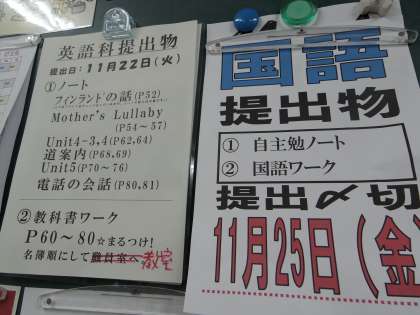 英語科提出物
提出日：11月22日(火)
①ノート
フィンランドの話(P52)
Mother's Lullaby
(P54～57)
Unit4-3,4(P62,64)
道案内(P68,69)
Unit5(P70～76)
電話の会話(P80,81)
②教科書ワーク
P60～80☆まるつけ!
名簿順にして職員室へ教室
国語
提出物
① 自主勉ノート
② 国語ワーク
提出〆切
11月25日(金)